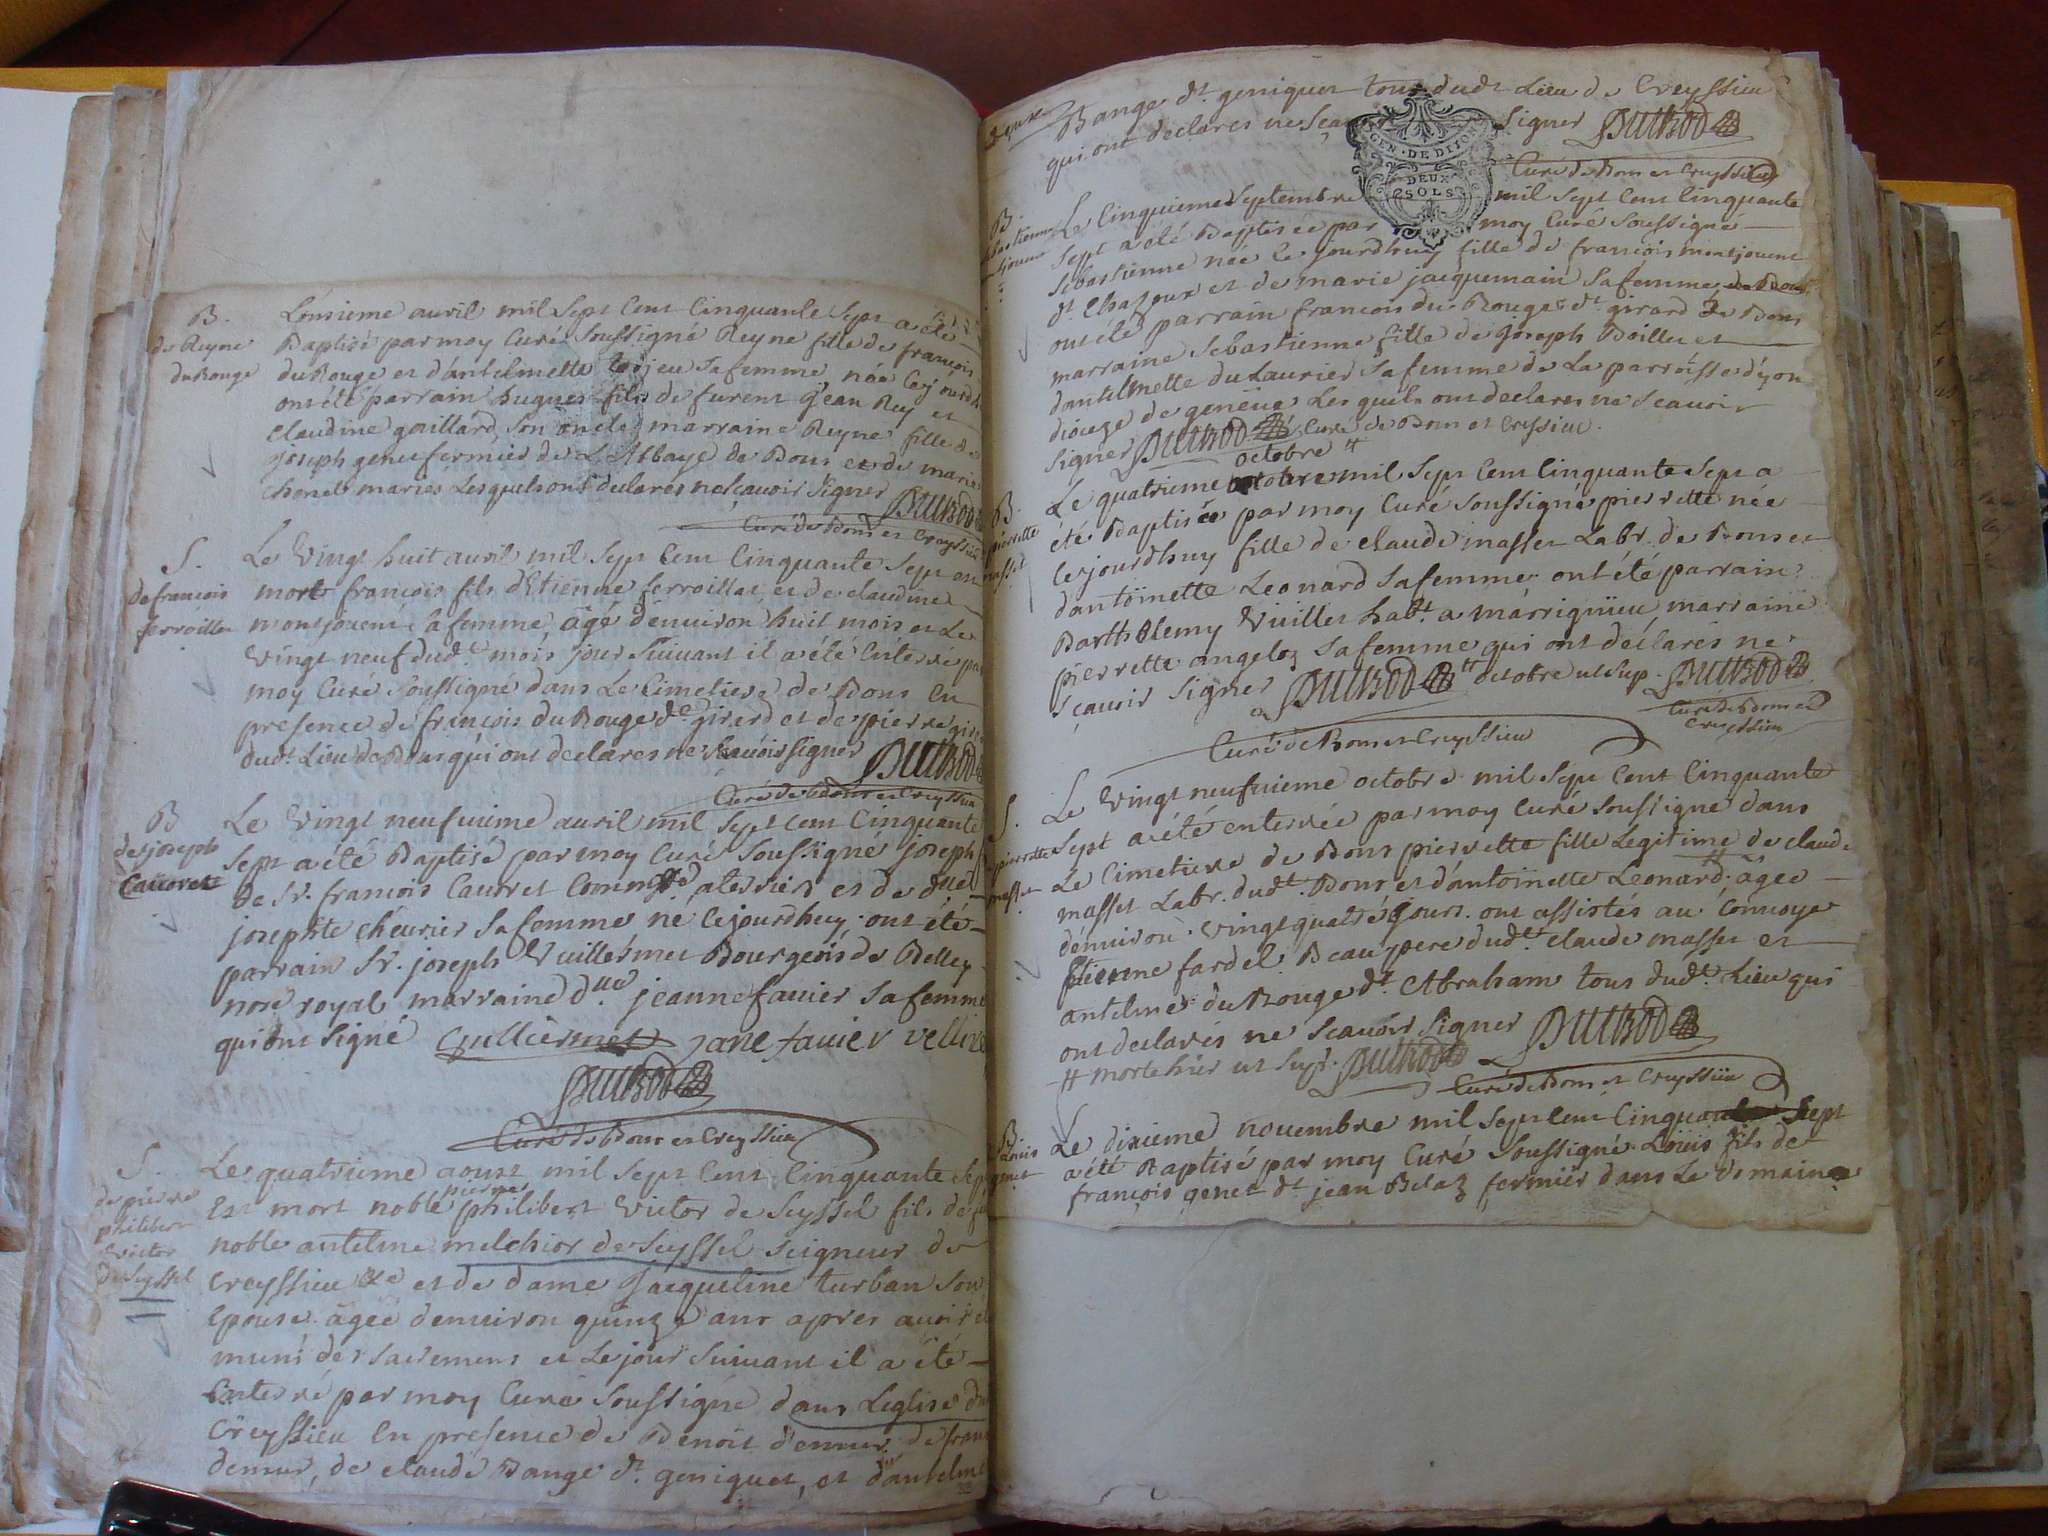 B.
de Reyne
du Rouge
L'onsieme avril mil sept cent cinquante sept a été
Baptisé par moy Curé soussigné Reyne fille de francois
du Rouge et d'antelmette sa femme, née
ont été parrain hugues fils de furent jean Rey et
Claudine gaillard, son oncle, marraine Reyne fille de
joseph genet fermier de L'Abbaye de Bons et de marie
mariés Lesquels ont declares ne scavoir signer
Curé de Bons et Creyssieu
S.
de francois
ferroillet
Le vingt huit avril mil sept cent cinquante sept est
mort francois fils d'Etienne ferroillet et de claudine
montjouent sa femme, âgé d'environ huit mois et Le
vingt neuf dud.t mois jour suivant il a été Enterré par
moy Curé soussigné dans Le Cimetiere de Bons En
presence de francois du Rouge d.t girard et de pierre
dud.t Lieu de Bons qui ont declares ne scavoir signer
Curé de Bons et Creyssieu
B
de joseph
Cauoret
Le vingt neufvieme avril mil sept cent cinquante
sept a été Baptisé par moy Curé soussigné joseph
de Sr. francois Cauoret et de
josephte chevrier sa femme né cejourdhuy, ont été
parrain Sr. joseph Vuillermet Bourgeois de Belley
royal marraine jeanne favier sa femme
qui ont signé Vuilliermet jane favier
Curé de Bons et Creyssieu
S.
de pierre
philibert
Victor
de Seyssel
Le quatrieme aoust mil sept cent cinquante sept
Est mort noble pierre philibert Victor de Seyssel fils de
noble antelme melchior de Seyssel seigneur de
Creyssieu &c et de dame Jacqueline turban son
Epouse âgée d'environ quinze ans apres avoir
muni des sacremens et Le jour suivant il a été
Enterré par moy Curé soussigné dans L'eglise
Creyssieu En presence de Benoit demeur de
demeur, de claude Bange d.t geniquet, et d'antelme
Bange d.t geniquet tous dud.t Lieu de Creyssieu
qui ont declares ne signer
GEN. DE DIJON
DEUX
SOLS
Curé de Bons et Creyssieu
B.
Sebastienne
Le Cinquieme septembre mil sept cent cinquante
sept a été Baptisée par moy Curé soussigné
sebastienne née ce jourdhuy fille de francois montjouent
d.t Chazoux et de marie jacquemain sa femme
ont été parrain francois du Rouge d.t girard de Bons
marraine Sebastienne fille de joseph Boillet et
d'antelmette du Laurier sa femme de La parroisse d'yon
dioceze de geneve Lesquels ont declares ne scavoir
signer Curé de Bons et Creyssieu.
octobre #
B.
pierrette
masset
Le quatrieme mil sept cent cinquante sept a
été Baptisée par moy Curé soussigné pierrette née
cejourdhuy fille de claude masset Labr. de Bons et
d'antoinette Leonard sa femme. ont été parrain
Barthelemy Vuillet hab.t a marrignieu, marraine
pierrette angeloz sa femme qui ont déclarés ne
scavoir signer # octobre ut sup.
Curé de Bons et Creyssieu
Curé de Bons et
Creyssieu
S.
pierrette
masset
Le vingt neufvieme octobre mil sept cent cinquante
sept a été enterrée par moy Curé soussigné dans
Le Cimetiere de Bons pierrette fille Legitime de claude
masset Labr. dud.t Bons et d'antoinette Leonard # âgée
d'environ vingt quatre jours. ont assistés au Convoye
Etienne fardel Beaupere dud.t claude masset et
antelme du Rouge d.t Abraham tous dud.t Lieu qui
ont declarés ne scavoir signer
# morte hier ut sup.
Curé de Bons et Creyssieu
B.
Louis
genet
Le dixieme novembre mil sept cent cinquante sept
a été Baptisé par moy Curé soussigné Louis fils de
françois genet d.t jean Belaz fermier dans Le domaine